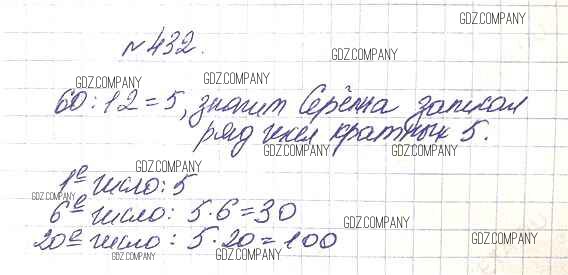 GDZ.COMPANY
№432.
GDZ.COMPANY
GDZ.COMPANY GDZ.COMPANY
60:12=5, значит Серёжа записал
ряд чисел кратных 5.
GDZ.COMPANY GDZ.COMPANY
GDZ.COMPANY
1е число: 5
GDZ.COMPANY
6е число: 5·6=30
GDZ.COMPANY
20е число: 5·20=100
GDZ.COMPANY
GDZ.COMPANY GDZ.COMPANY